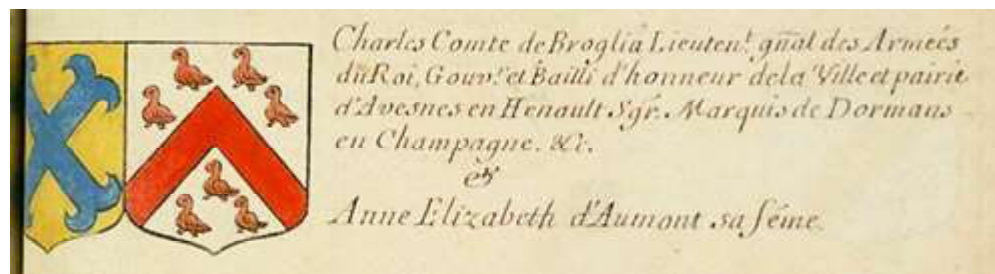 Charles Comte de Broglia Lieuten.t gñal des Armeés
du Roi, Gouv.r et Bailli d'honneur de la Ville et pairie
d'Avesnes en Henault Sgr. Marquis de Dormans
en Champagne. &c.
&
Anne Elizabeth d'Aumont sa féme.